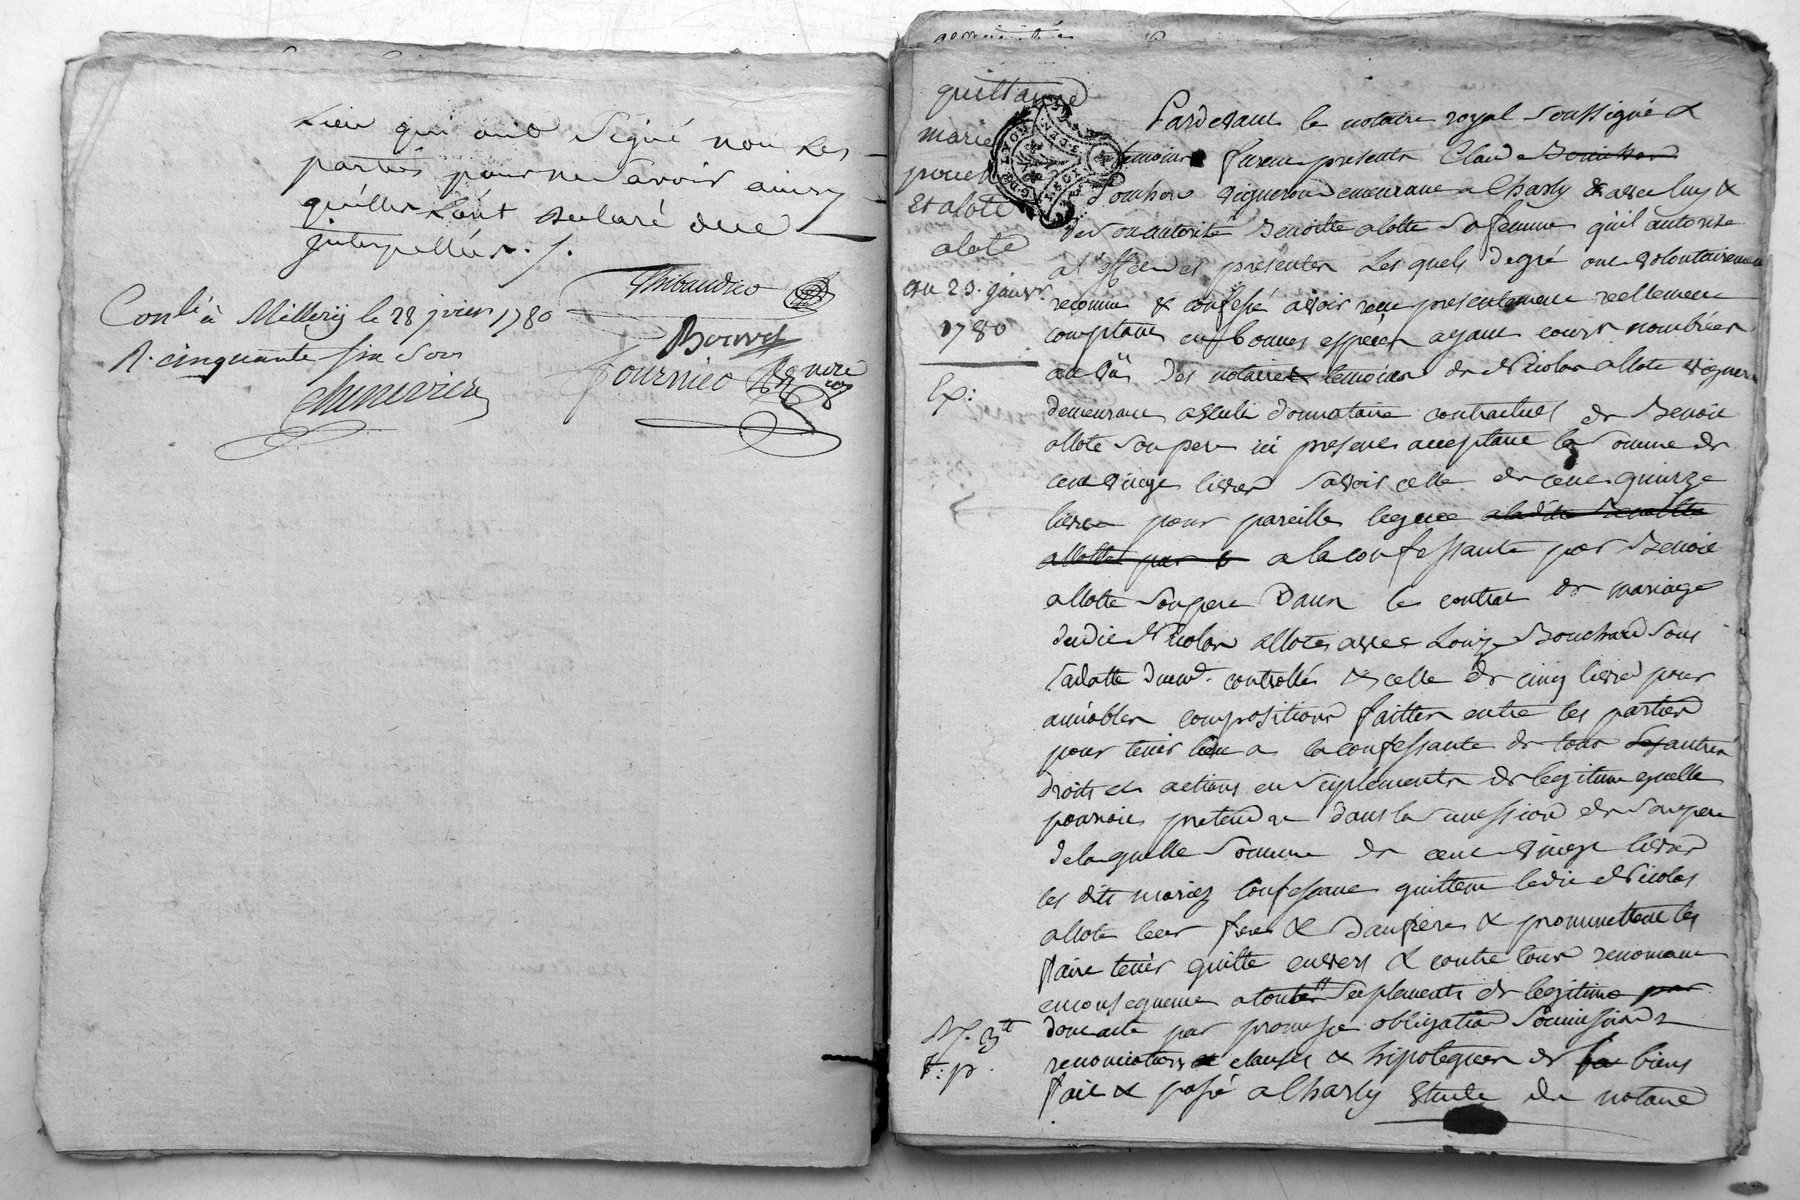 Lieu qui ont Signé non Les
parties pour ne Savoir ainsy
qu'elles L'ont declaré de ce
jnterpellées ./.
Thibaudier
Conlé à Millery le 28 jvier 1780
Bouvet
R. cinquante six Sous
fournier
Chenevier
quittance
mariez
et alote
alote
du 23. janvr.
1780
Ex:
Pardevant le notaire royal Soussigné &
temoins furent presents Claude Bouchard
vigneron demeurant a Charly & avec luy &
de Son autorité Benoitte alotte Sa femme qu'il autorise
a l'effet des presentes Lesquels de gré ont volontairement
reconnu & confessé avoir recu presentement reellement
comptant en bonnes especes ayant cours nombrées
au vû des notaire & temoins de Nicolas allote vigneron
demeurant donnataire contractuel de Benoit
allote Son pere ici present acceptant la Somme de
cent vingt livres Savoir celle de cent quinze
livres pour pareille leguée a la dite Benoitte
allotte par a la confessante par Benoit
allotte Son pere Dans le contrat de mariage
dudit Nicolas allotes avec Louize Bouchard Sous
Sa datte duemt. controllé & celle de cinq livres pour
amiables compositions faittes entre les parties
pour tenir lieu a la confessante de tous Ses autres
droits et actions en Suplements de legitime quelle
pourroit pretendre dans la Succession de Son pere
de laquelle Somme de cent vingt livres
les dits mariez Confessant quittent ledit Nicolas
allote leur frere & beaufrere & promettent les
faire tenir quitte envers & contre tous renoncant
en consequence a toutes Suplements de legitime par
dont acte par promesse obligation Soumissions
renonciations & clauses & hipoteques de biens
fait & passé a Charly Etude du notaire